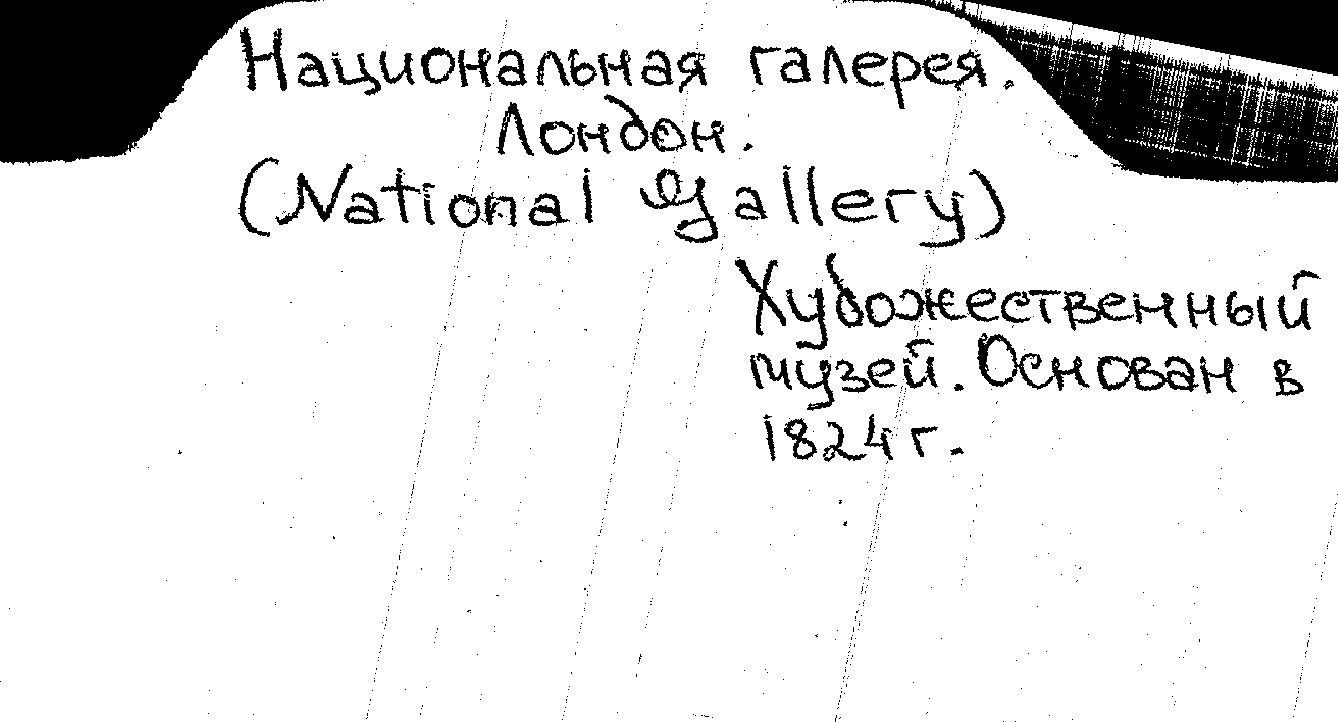 Национальная галерея.
Лондон.
(National Gallery)
Художественный
музей. Основан в
1824 г.